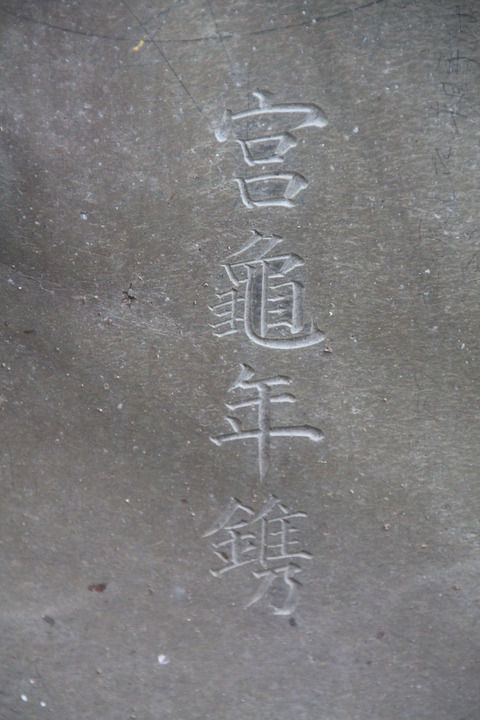 宮龜年鐫